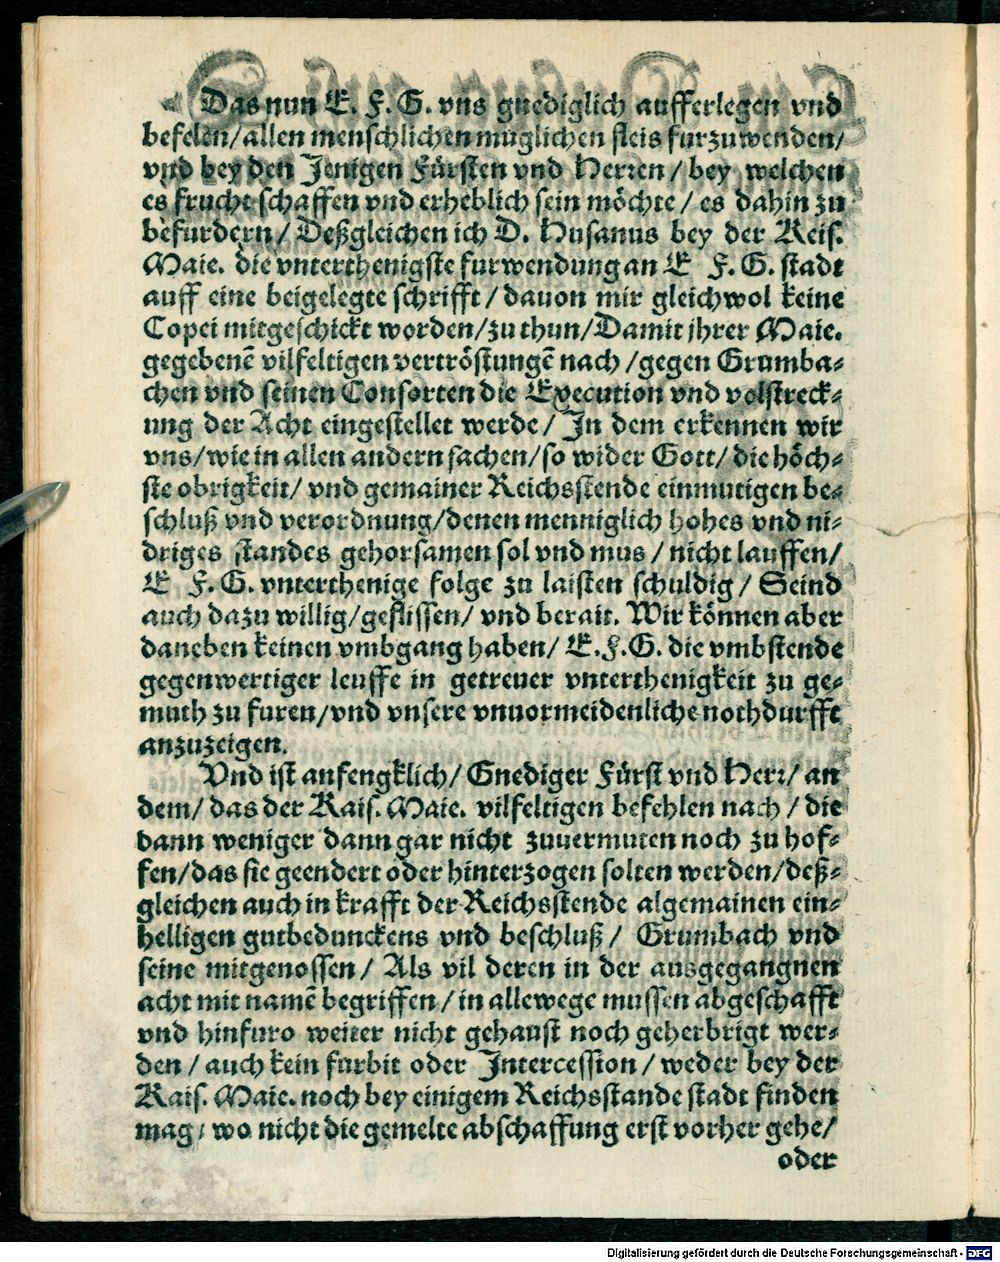 Das nun E. F. G. vns gnediglich aufferlegen vnd
befelen/ allen menschlichen müglichen fleis furzuwenden/
vnd bey den Jenigen Fürsten vnd Herren / bey welchen
es frucht schaffen vnd erheblich sein möchte / es dahin zu
befurdern/ Deßgleichen ich D. Husanus bey der Keis.
Maie. die vnterthenigste furwendung an E F. G. stadt
auff eine beigelegte schrifft / dauon mir gleichwol keine
Copei mitgeschickt worden/ zu thun/ Damit jhrer Maie.
gegebenē vilfeltigen vertröstungē nach / gegen Grumba-
chen vnd seinen Consorten die Execution vnd volstreck-
ung der Acht eingestellet werde/ In dem erkennen wir
vns/ wie in allen andern sachen/ so wider Gott/ die höch-
ste obrigkeit/ vnd gemainer Reichsstende einmutigen be-
schluß vnd verordnung/ denen menniglich hohes vnd ni-
driges standes gehorsamen sol vnd mus / nicht lauffen/
E F. G. vnterthenige folge zu laisten schuldig/ Seind
auch dazu willig/ geflissen/ vnd berait. Wir können aber
daneben keinen vmbgang haben/ E. F. G. die vmbstende
gegenwertiger leuffe in getreuer vnterthenigkeit zu ge-
muth zu furen/ vnd vnsere vnuormeidenliche nothdurfft
anzuzeigen.
Vnd ist anfengklich/ Gnediger Fürst vnd Herr/ an
dem/ das der Kais. Maie. vilfeltigen befehlen nach / die
dann weniger dann gar nicht zuuermuten noch zu hof-
fen/ das sie geendert oder hinterzogen solten werden/ deß-
gleichen auch in krafft der Reichsstende algemainen ein-
helligen gutbedunckens vnd beschluß/ Grumbach vnd
seine mitgenossen/ Als vil deren in der ausgegangnen
acht mit namē begriffen/ in allewege mussen abgeschafft
vnd hinfuro weiter nicht gehaust noch geherbrigt wer-
den / auch kein furbit oder Intercession / weder bey der
Kais. Maie. noch bey einigem Reichsstande stadt finden
mag, wo nicht die gemelte abschaffung erst vorher gehe/
oder
Digitalisierung gefördert durch die Deutsche Forschungsgemeinschaft - DFG